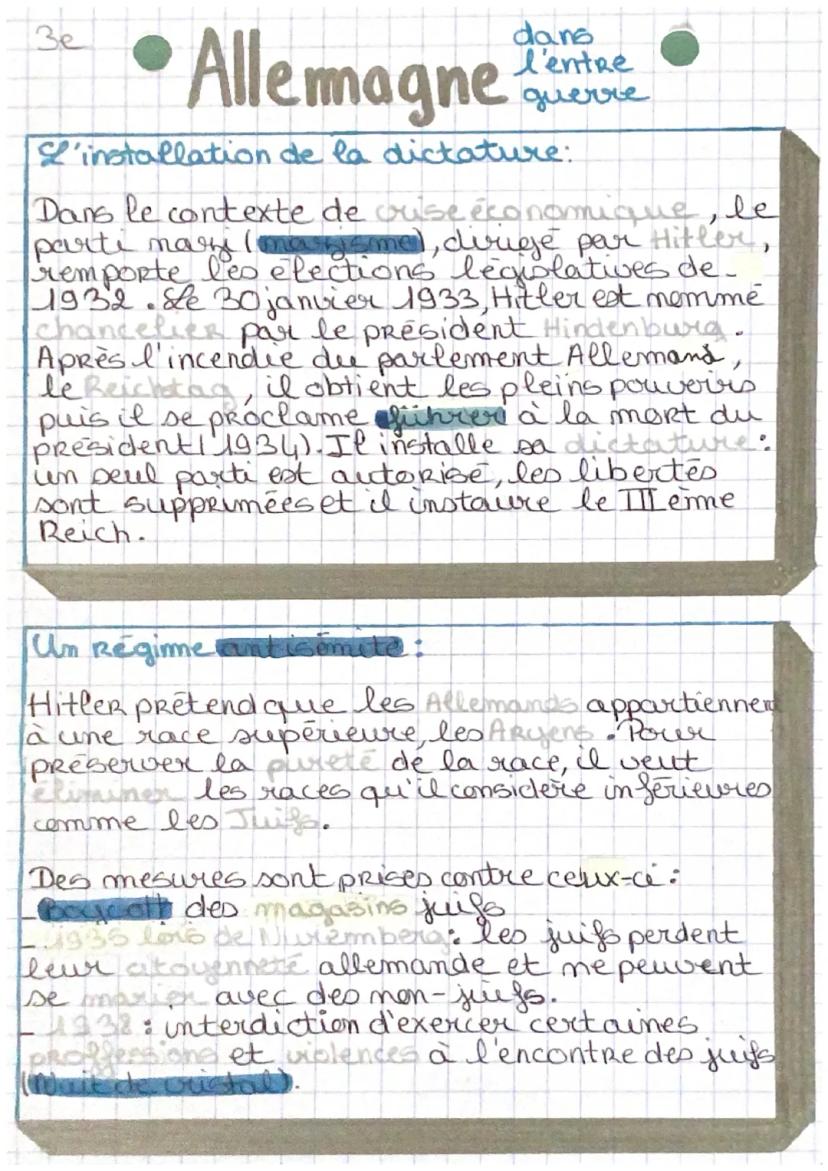 3e
Allemagne
dans
l'entre
guerre
L'installation de la dictature :
Dans le contexte de crise économique, le
parti nazi (nazisme), dirigé par Hitler,
remporte les élections législatives de
1932. Le 30 janvier 1933, Hitler est nommé
chancelier par le président Hindenburg.
Après l'incendie du parlement Allemand,
le Reichtag, il obtient les pleins pouvoirs
puis il se proclame führer à la mort du
président (1934). Il installe sa dictature :
un seul parti est autorisé, les libertés
sont supprimées et il instaure le IIIème
Reich.
Un Régime antisémite :
Hitler prétend que les Allemands appartiennent
à une race supérieure, les Aryens. Pour
préserver la pureté de la race, il veut
éliminer les races qu'il considère inférieures
comme les Juifs.
Des mesures sont prises contre ceux-ci :
- Boycott des magasins juifs
- 1935 lois de Nuremberg : les juifs perdent
leur citoyenneté allemande et ne peuvent
se marier avec des non-juifs.
- 1938 : interdiction d'exercer certaines
proffessions et violences à l'encontre des juifs
(Nuit de cristal).